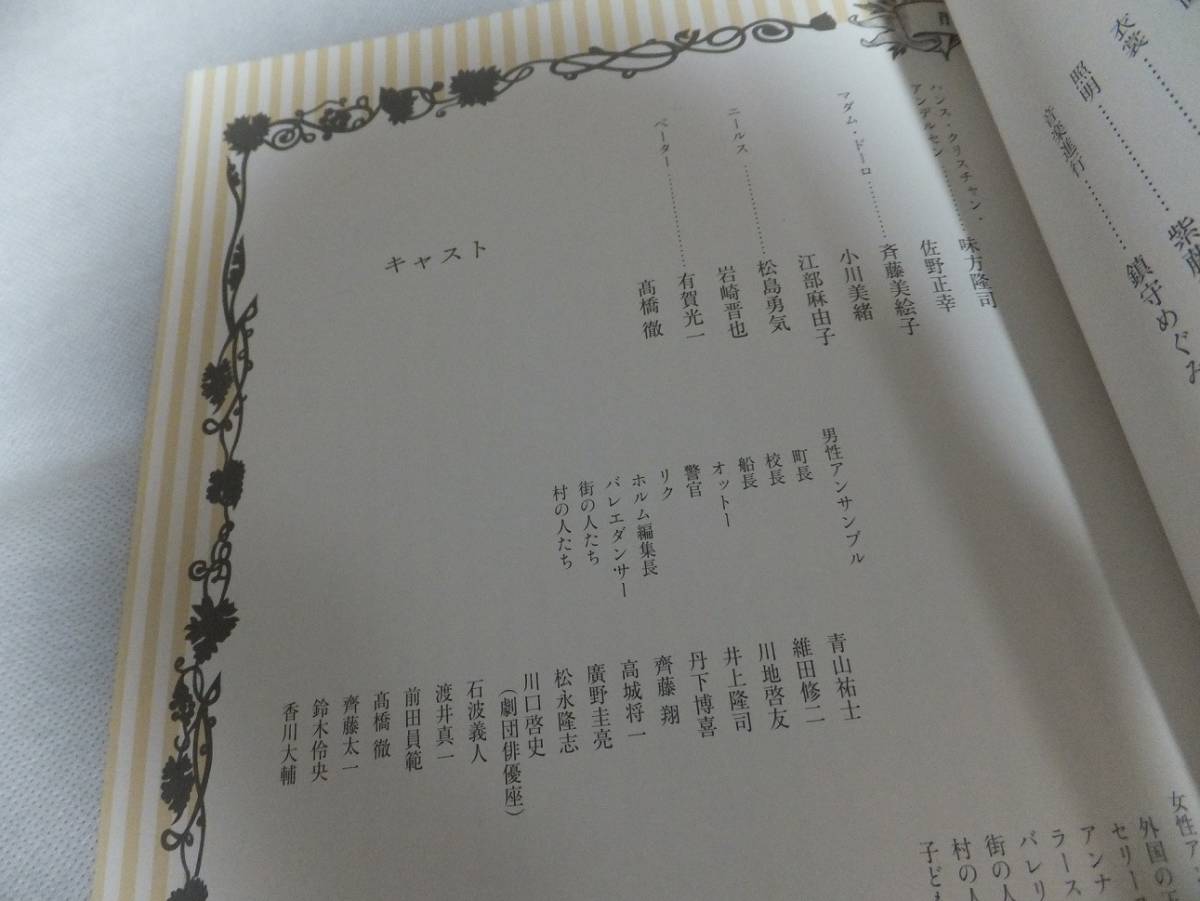 衣裳
照明
紫
音楽進行
鎮守めぐみ
キャスト
ハンス・クリスチャン・
アンデルセン
味方隆司
佐野正幸
マダム・ドーロ
斉藤美絵子
小川美緒
江部麻由子
ニールス
松島勇気
岩崎晋也
ペーター
有賀光一
髙橋徹
男性アンサンブル
町長
校長
船長
オットー
警官
リク
ホルム編集長
バレエダンサー
街の人たち
村の人たち
青山祐士
維田修二
川地啓友
井上隆司
丹下博喜
齊藤翔
高城将一
廣野圭亮
松永隆志
川口啓史
(劇団俳優座)
石波義人
渡井真一
前田員範
髙橋徹
齊藤太一
鈴木伶央
香川大輔
女性ア
外国の
セリー
アンナ
ラース
バレリ
街の人
村の人
子ども